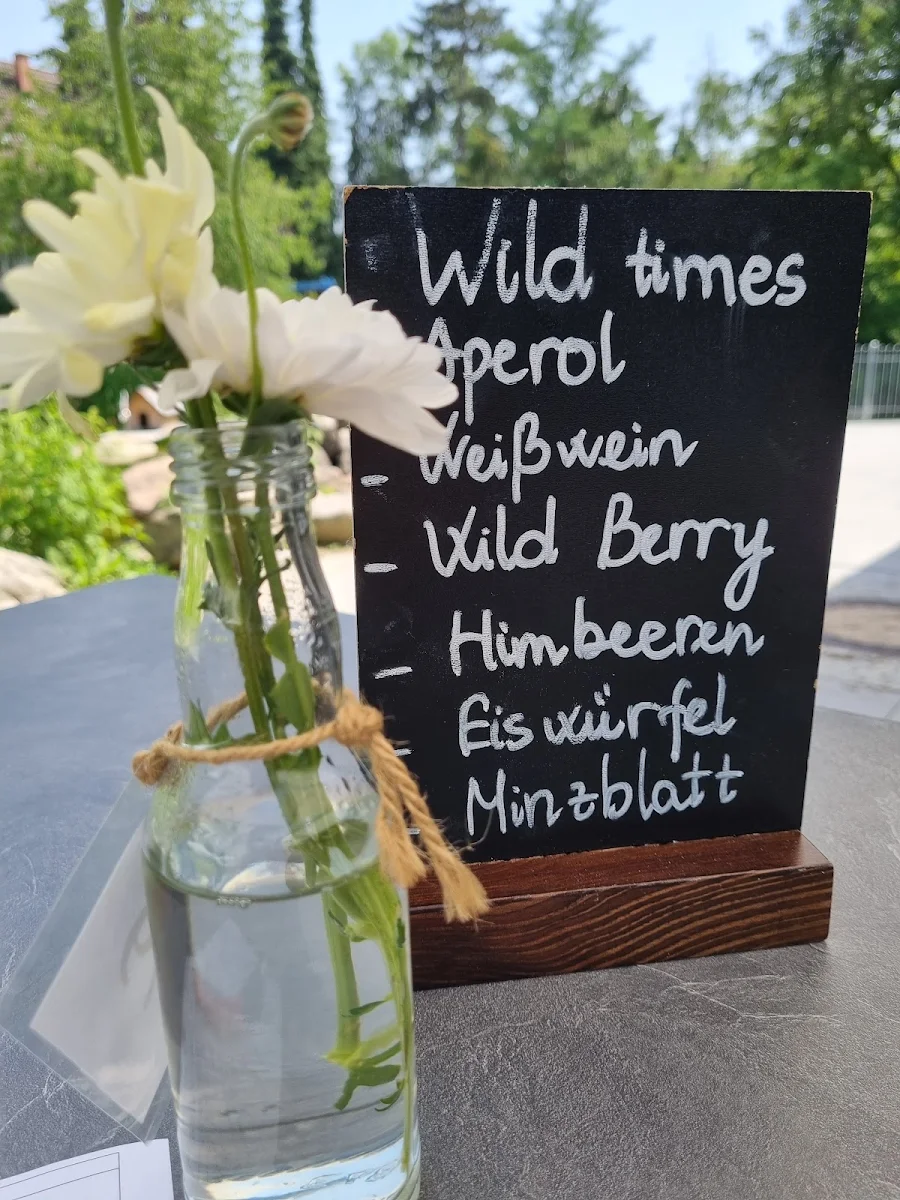 Wild times
Aperol
- Weißwein
- Wild Berry
- Himbeeren
- Eiswürfel
- Minzblatt